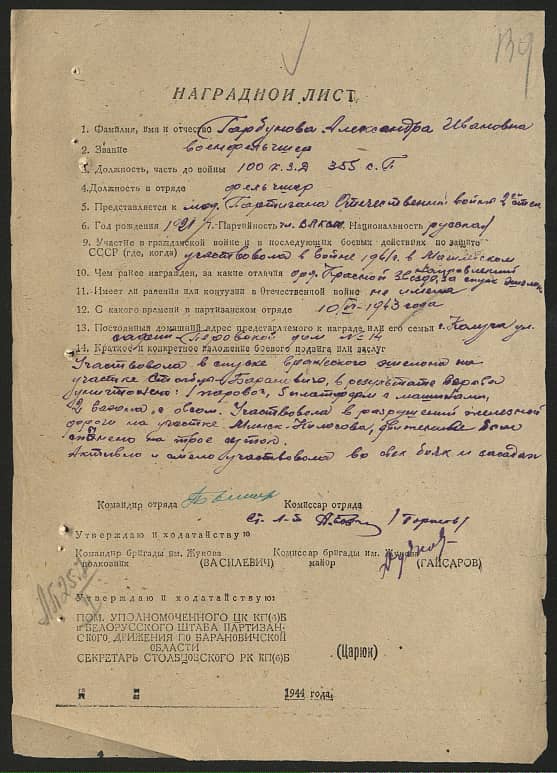 139
НАГРАДНОЙ ЛИСТ
1. Фамилия, имя и отчество Гарбунова Александра Ивановна
2. Звание военфельдшер
3. Должность, часть до войны 355 с.п.
4. Должность в отряде фельдшер
5. Представляется к мед. Партизана Отечественной войны 2ой степ.
6. Год рождения 1921 г. Партийность чл. ВЛКСМ. Национальность русская
9. Участие в гражданской войне и в последующих боевых действиях по защите
СССР (где, когда) участвовала в войне 1941г. в
направлении
10. Чем ранее награжден, за какие отличия орд. Красной звезда, за спуск эшелон.
11. Имеет ли ранения или контузии в Отечественной войне не имела
12. С какого времени в партизанском отряде 10/VI-1943 года
13. Постоянный домашний адрес представляемого к награде или его семьи г. Калуга ул.
дом № 14
14. Краткое и конкретное изложение боевого подвига или заслуг
Участвовала в спуске вражеского эшелона на
участке Столбцы-Барановичи, в результате взрыва
уничтожено: 1 паровоз, 5 платформ с машинами,
2 вагона, с овсом. Участвовала в разрушений железной
дороги на участке Минск-Колосова, движение было
на трое суток.
Активно и смело участвовала во всех боях и засадах
Командир отряда
Комиссар отряда
Ст. л-т
Утверждаю и ходатайствую
Командир бригады им. Жукова Комиссар бригады им. Жукова
полковник (ВАСИЛЕВИЧ) майор (ГАЙСАРОВ)
Утверждаю и ходатайствую:
ПОМ. УПОЛНОМОЧЕННОГО ЦК КП(б)Б
и БЕЛОРУССКОГО ШТАБА ПАРТИЗАН-
СКОГО ДВИЖЕНИЯ ПО БАРАНОВИЧСКОЙ
ОБЛАСТИ
СЕКРЕТАРЬ СТОЛБЦОВСКОГО РК КП(б)Б (Царюк)
1944 года.